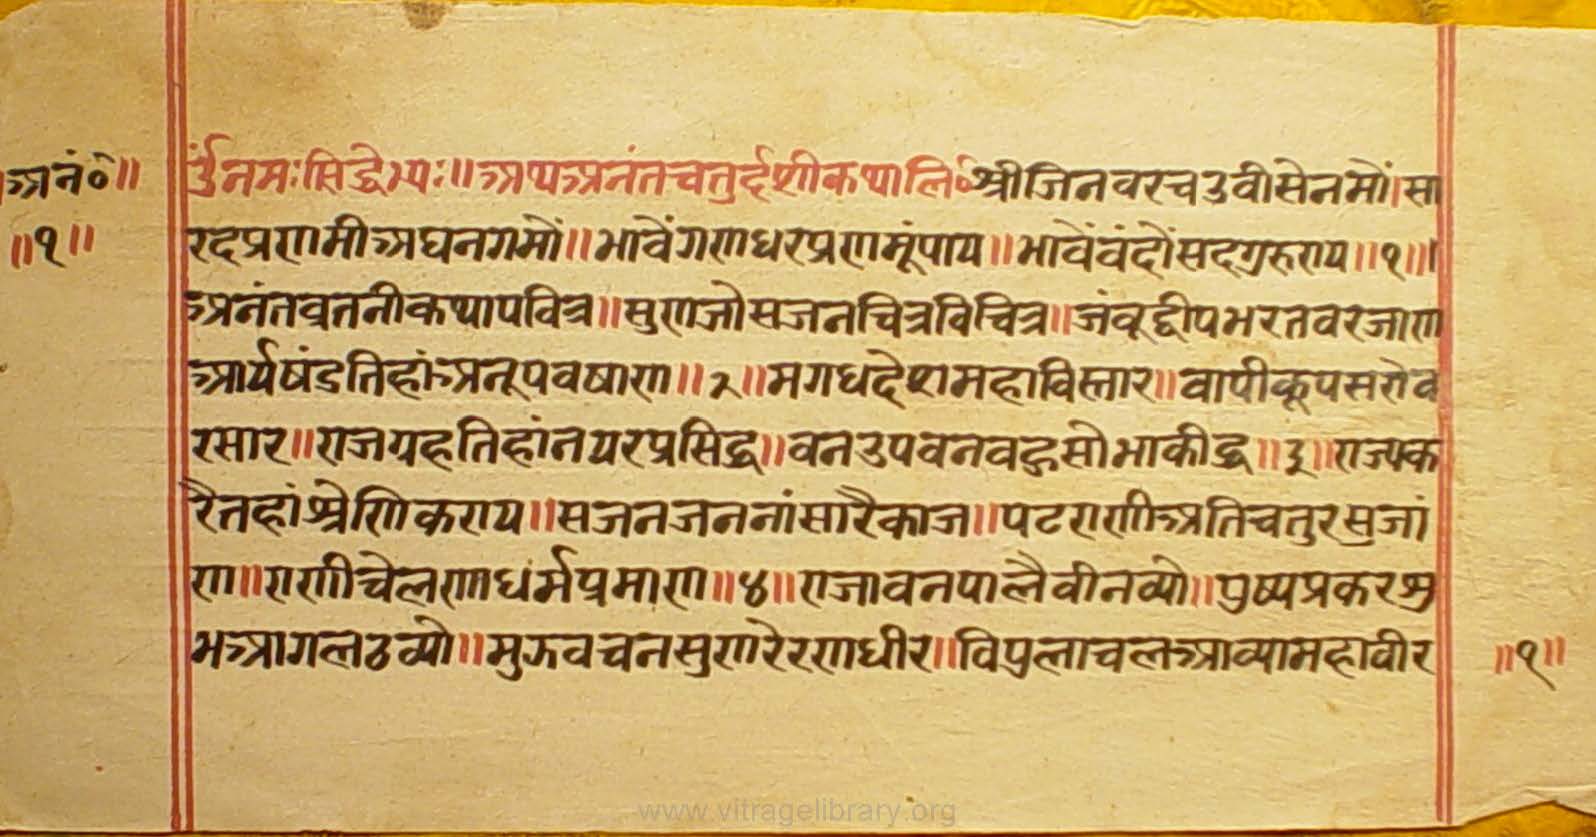 अनं०॥
॥१॥
ॐनमःसिद्धेभ्यः॥अथअनंतचतुर्दशीकथालि०श्रीजिनवरचउवीसेनमों।सा
रदप्रणमीअघनगमों॥भावेंगणधरप्रणमूंपाय॥भावेंवंदोंसदगुरुराय॥१॥।
अनंतव्रतनीकथापवित्र॥सुणजोसजनचित्रविचित्र॥जंवूद्दीपभरतवरजाण
आर्यषंडतिहांअनूपवषाण॥२॥मगधदेशमहाविस्तार॥वापीकूपसरोव
रसार॥राजग्रहतिहांनयरप्रसिद्ध॥वनउपवनवहुसोभाकीद्ध॥३॥राज्यक
रैतहांश्रेणिकराय॥सजनजननांसारैकाज॥पटराणीअतिचतुरसुजां
ण॥राणीचेलणाधर्मप्रमाण॥४॥राजावनपालैवीनव्यो॥पुष्पप्रकरशु
भआगलठव्यो॥मुझवचनसुणरेरणधीर॥विपुलाचलआव्यामहावीर
॥१॥
www.vitragelibrary.org